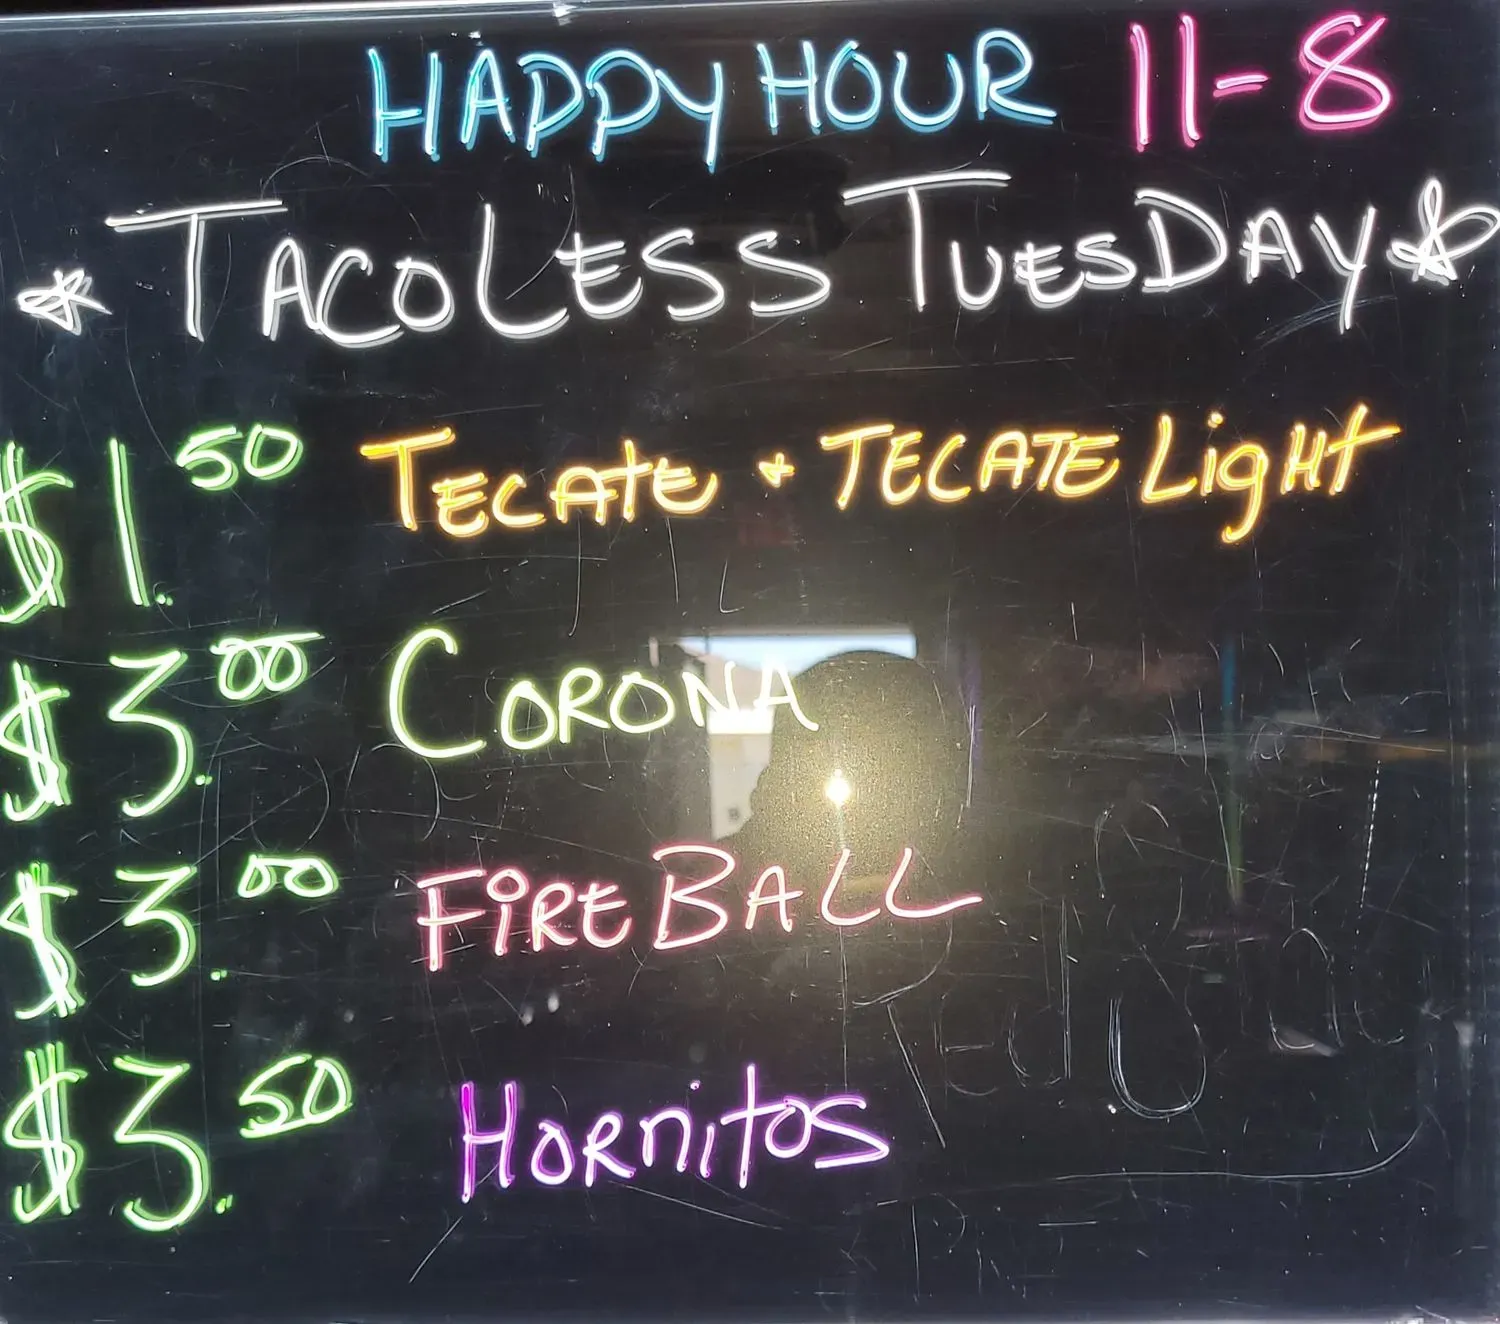 HAPPY HOUR 11-8
*TACOLESS TUESDAY*
$1.50 TECATE + TECATE LigHt
$3.00 CORONA
$3.00 FiREBALL
$3.50 HORnitos